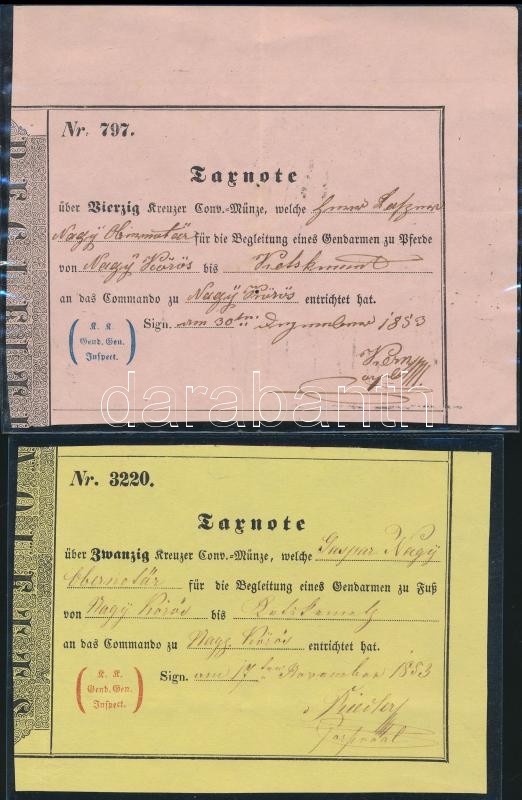 Nr. 797.
Taxnote
über Vierzig Kreuzer Conv.-Münze, welche
Nagÿ für die Begleitung eines Gendarmen zu Pferde
von Nagÿ Körös bis
an das Commando zu Nagÿ Körös entrichtet hat.
Sign. am 30ten 1853
K. K.
Gend. Gen.
Inspect.
darabanth
Nr. 3220.
Taxnote
über Zwanzig Kreuzer Conv.-Münze, welche Gaspar Nagÿ
Obernotär für die Begleitung eines Gendarmen zu Fuß
von Nagÿ Körös bis
an das Commando zu Nagÿ Körös entrichtet hat.
Sign. am 17ten November 1853
K. K.
Gend. Gen.
Inspect.